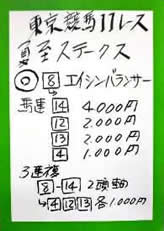 東京競馬11レース
夏至ステークス
◎ 8 エイシンバランサー
馬連 14 4.000円
12 2.000円
13 2.000円
4 1.000円
3連複
8-14 2頭軸
→4 12 13 各1.000円